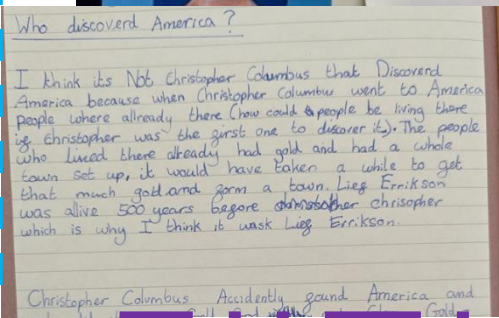 Who discoverd America?
I think its Not Christopher Columbus that Discoverd
America because when Christopher Columbus went to America
people where allready there (how could people be living there
if Christopher was the first one to discover it). The people
who lived there already had gold and had a whole
town set up, it would have taken a while to get
that much gold and form a town. Lief Errikson
was alive 500 years before chrisopher
which is why I think it wask Lief Errikson.
Christopher Columbus Accidently found America and
Gold